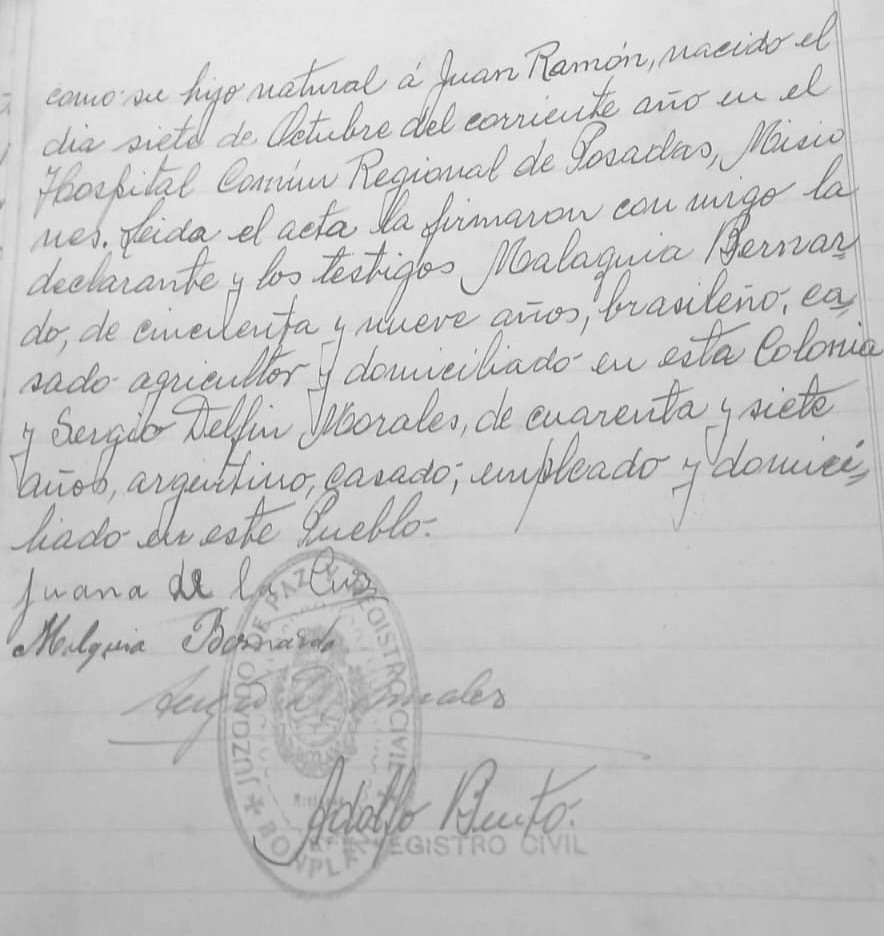 como su hijo natural á Juan Ramón, nacido el
dia siete de Octubre del corriente año en el
Hospital Común Regional de Posadas, Misio
nes. Leida el acta la firmaron con migo la
declarante y los testigos Malaquia Bernar
do, de cincuenta y nueve años, brasileño, ca,
sado agricultor y domiciliado en esta Colonia
y Sergio Delfin Morales, de cuarenta y siete
años, argentino, casado, empleado y domici,
liado en este Pueblo.
Juana de la Cruz
Malquia Bernardo
Sergio D. Morales
Adolfo Bento.
JUZGADO DE PAZ Y REGISTRO CIVIL
BONPL
REGISTRO CIVIL